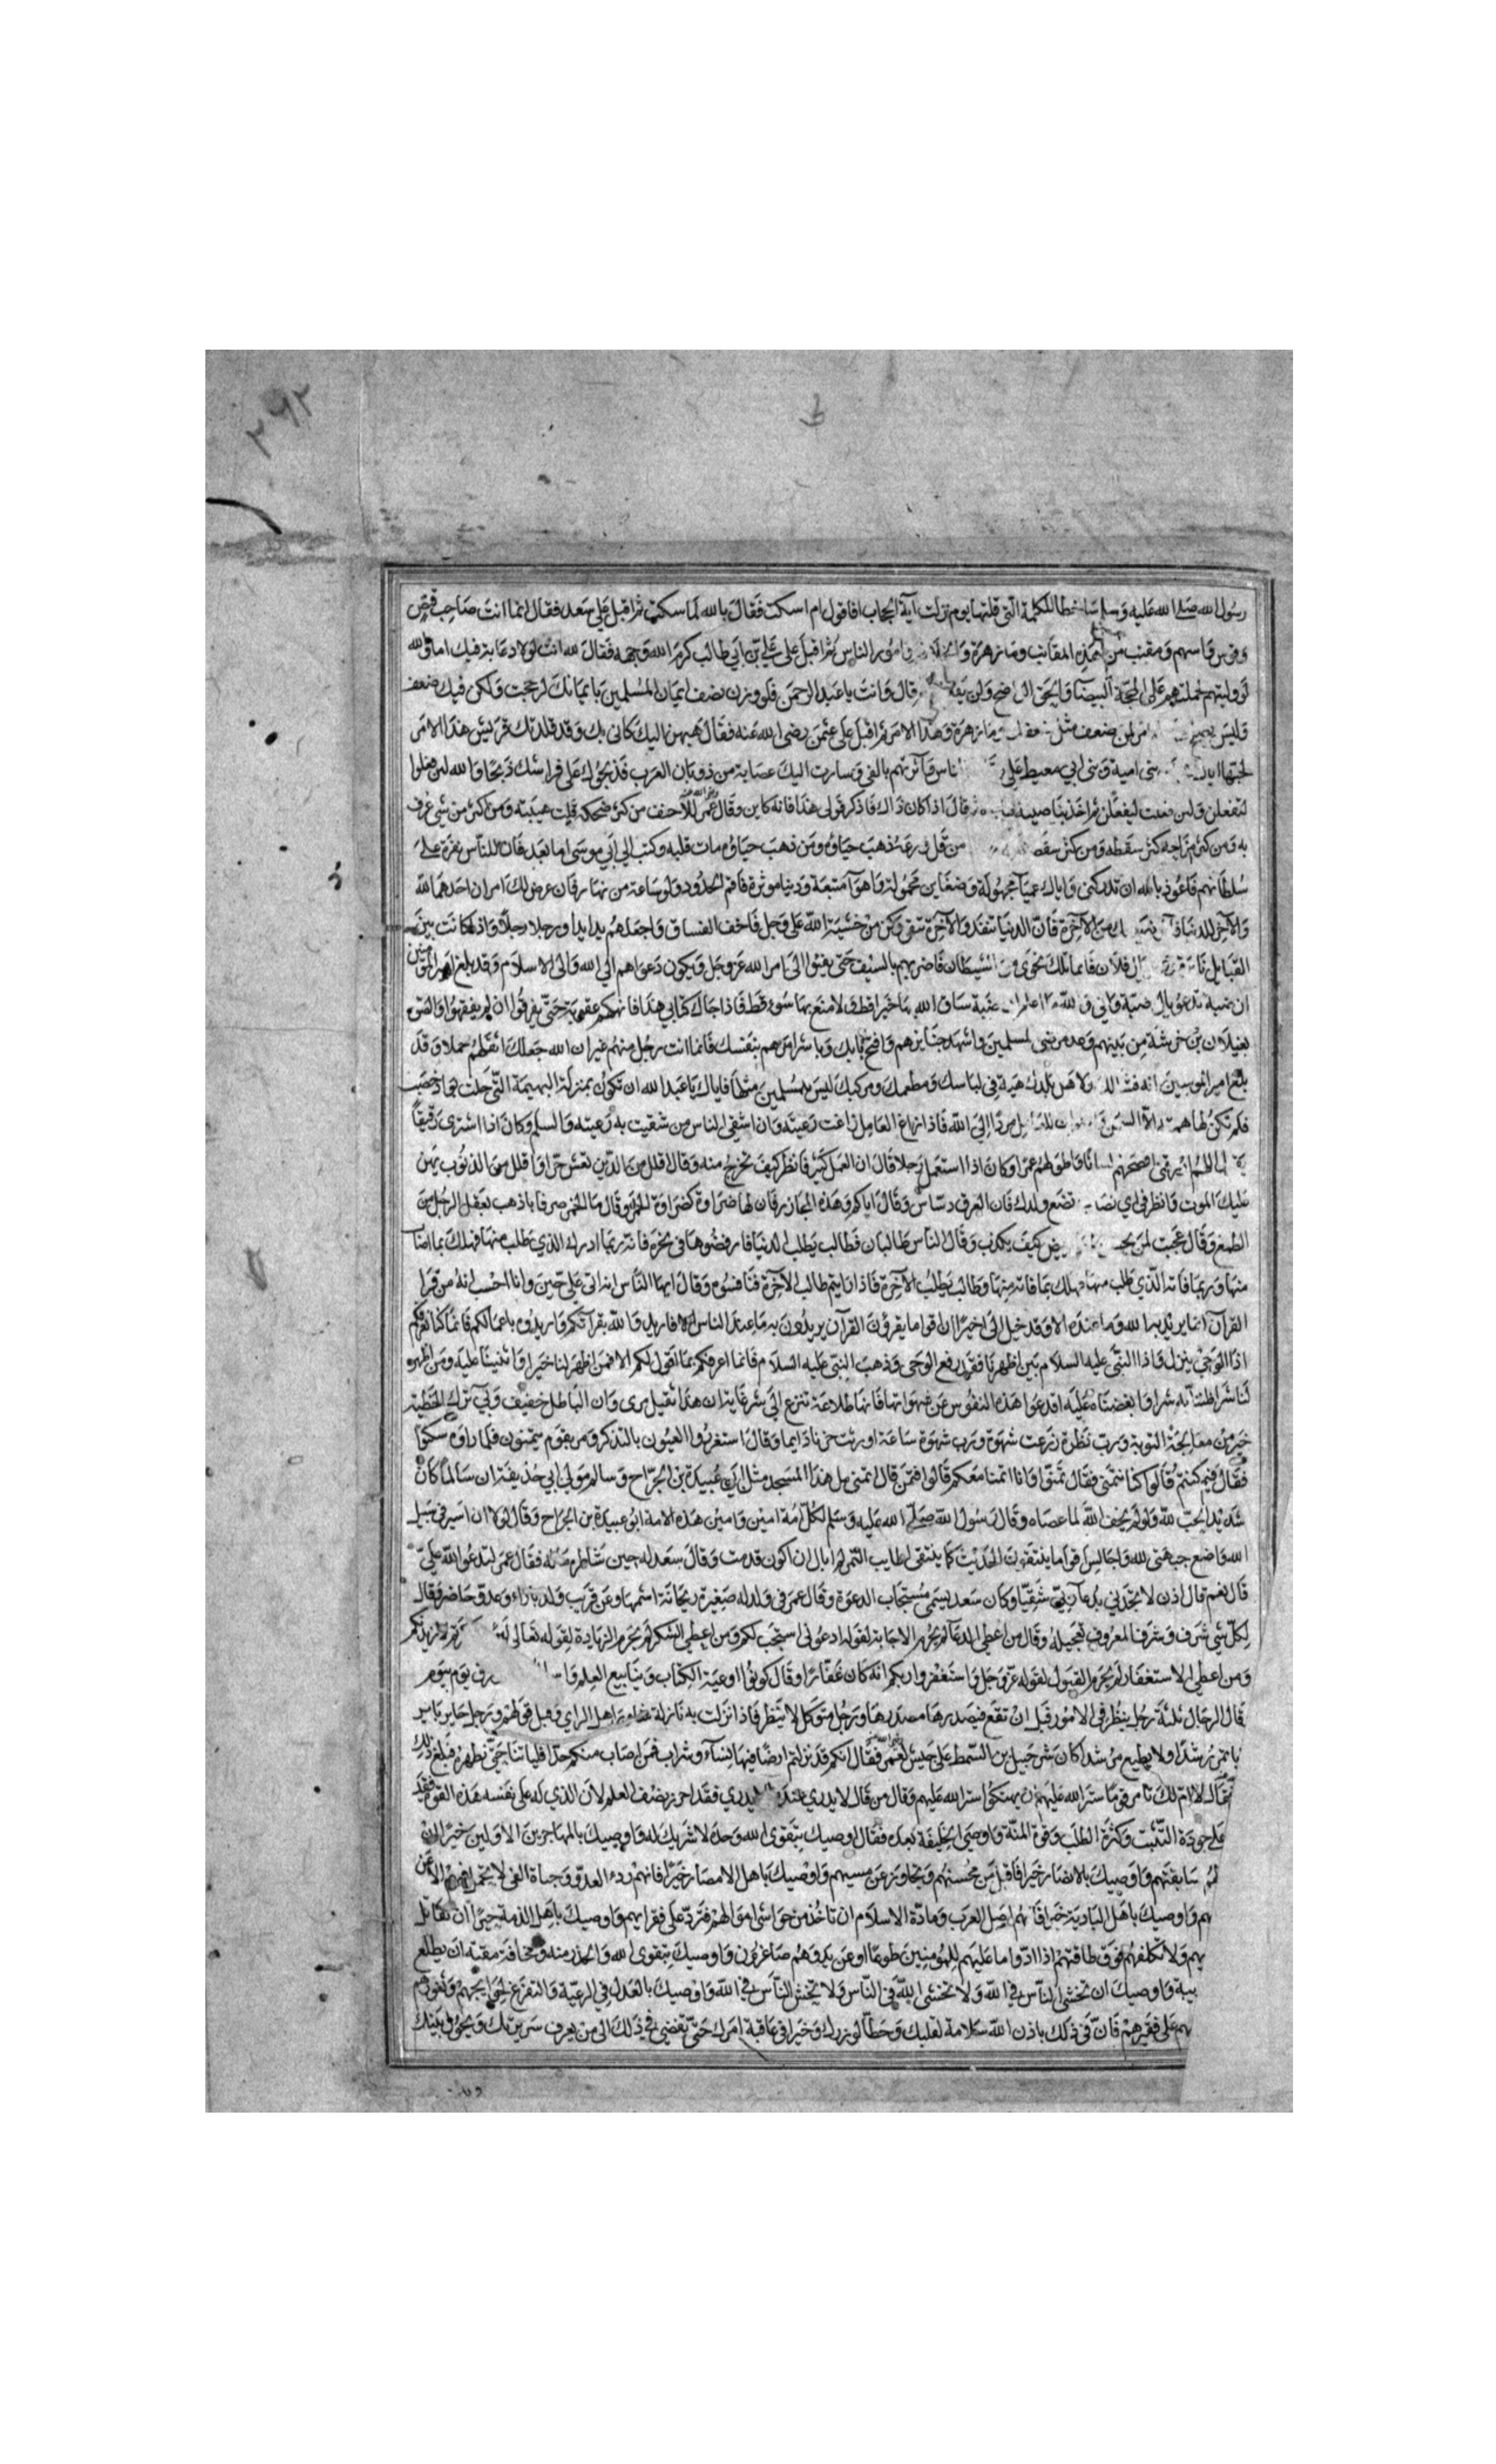 رسول الله صلى الله عليه وسلم ساخطا للكلمة التى قلتها يوم نزلت آية الحجاب افاقول ام اسكت فقال بالله لما سكت ثم اقبل على سعد فقال انما انت صاحب قنص
وقوس واسهم ومقنب من هذه المقانب وما زهرة وامور الناس ثم اقبل على على بن ابي طالب كرم الله وجهه فقال لله انت لولا دعابة فيك اما والله
لو وليتهم لحملتهم على المحجة البيضا والحق الواضح ولن يفعلوا قال وانت يا عبد الرحمن فلو وزن نصف ايمان المسلمين بايمانك لرجحت ولكن فيك ضعف
وليس يصلح من ضعف مثل ضعفك وما زهرة وهذا الامر ثم اقبل على عثمن رضى الله عنه فقال هيهن اليك كانى بك وقد قلدتك قريش هذا الامر
لحبها اياك بنى امية وبنى ابي معيط على الناس وآثرتهم بالفى وسارت اليك عصابة من ذوبان العرب فذبحوك على فراشك ذبحا والله لئن فعلوا
لتفعلن ولئن فعلت ليفعلن ثم اخذ بناصيته فقال اذا كان ذاك فاذكر قولى هذا فانه كاين وقال عمر للاحنف من كثر ضحكه قلت هيبته ومن اكثر من شي عرف
به ومن كثر مزاحه كثر سقطه ومن كثر سقطه من قل ورعه ذهب حياؤه ومن ذهب حياؤه مات قلبه وكتب الى ابي موسى اما بعد فان للناس نفرة على
سلطانهم فاعوذ بالله ان تدركنى واياك عمياء مجهولة وضغاين محمولة واهوآ متبعة ودنيا موثرة فاقم الحدود ولو ساعة من نهار فان عرض لك امران احدهما لله
والآخر للدنيا فآثر نصيبك من الآخرة فان الدنيا تنفد والآخرة تبقى وكن من خشية الله على وجل فاخف الفساق واجعلهم يدا يدا ورجلا رجلا واذا كانت بين
القبايل نائرة يال فلان فانما تلك نجوى من الشيطان فاضربهم بالسيف حتى يفيئوا الى امر الله عز وجل ويكون دعواهم الى الله والى الاسلام وقد بلغ امير المؤمنين
ان ضبة تدعو يال ضبة وانى والله ما اعلم ان ضبة ساق الله بها خيرا قط ولا منع بها سوء قط فاذا جاك كتابي هذا فانهكهم عقوبة حتى يفرقوا ان لم يفقهوا والصق
بغيلان بن خرشة من بينهم وعد مرضى المسلمين واشهد جنايزهم وافتح بابك وباشر امرهم بنفسك فانما انت رجل منهم غير ان الله جعلك اثقلهم حملا وقد
بلغ امير المومنين انه فشا لك ولاهل بلدك هيئة فى لباسك ومطعمك ومركبك ليس للمسلمين مثلها فاياك يا عبد الله ان تكون بمنزلة البهيمة التى حلت بواد خصب
فلم تكن لها همة الا السمن للعامل مردا الى الله فاذا زاغ العامل زاغت رعيته وان اشقى الناس من شقيت به رعيته والسلم وكان اذا اشترى رقيقا
قال اللهم ارزقنى اصحهم لسانا واطولهم عمرا وكان اذا استعمل رجلا قال ان العمل كبير فانظر كيف تخرج منه وقال اقلل من الدين تعش حرا واقلل من الذنوب يهن
عليك الموت وانظر فى اي نصاب تضع ولدك فان العرق دساس وقال اياكم وهذه المجازر فان لها ضراوة كضراوة الخمر وقال ما الخمر صرفا باذهب لعقل الرجل من
الطمع وقال عجبت لمن كيف يكذب وقال الناس طالبان فطالب يطلب الدنيا فارفضوها فى نحره فانه ربما ادرك الذي يطلب منها فهلك بما اصاب
منها وربما فاته الذي طلب منها فهلك بما فاته منها وطالب يطلب الآخرة فاذا رايتم طالب الآخرة فنافسوه وقال ايها الناس انه اتى على حين وانا احسب انه من قرا
القرآن انما يريد به الله وما عنده الا وقد خيل الى اخيرا ان اقواما يقرؤن القرآن يريدون به ما عند الناس الا فاريدوا الله بقرآتكم واريدوه باعمالكم فانما كنا نعرفكم
اذ الوحي ينزل واذ النبي عليه السلام بين اظهرنا فقد رفع الوحى وذهب النبى عليه السلام فانما اعرفكم بما اقول لكم الا فمن اظهر لنا خيرا واثنينا عليه ومن اظهر
لنا شرا ظننا به شرا وابغضناه عليه اقدعوا هذه النفوس عن شهواتها فانها طلاعة تنزع الى شر غاية ان هذا ثقيل مرى وان الباطل خفيف وبي ترك الخطية
خير من معالجة التوبة ورب نظرة زرعت شهوة ورب شهوة ساعة اورثت حزنا دايما وقال استغزروا العيون بالتذكر ومر بقوم يتمنون فلما راوه سكتوا
فقال فيم كنتم قالوا كنا نتمنى فقال تمنوا وانا اتمنا معكم قالوا فتمن قال اتمنى مل هذا المسجد مثل ابي عبيدة بن الجراح وسالم مولى ابي حذيفة ان سالما كان
شديد الحب لله ولو لم يخف الله لما عصاه وقال رسول الله صلى الله عليه وسلم لكل امة امين وامين هذه الامة ابو عبيدة بن الجراح وقال لولا ان اسير فى سبيل
الله واضع جبهتى لله واجالس اقواما ينتقون الحديث كما ينتقى اطايب التمر لم ابال ان اكون قدمت وقال سعد له حين شاطره ماله فقال عمر لتدعوا الله على
قال نعم قال اذن لا تجدني بدعآ ربي شقيا وكان سعد يسمى مستجاب الدعوة وقال عمر فى ولد له صغيرة ريحانة اشمها وعن قريب ولد بار او عدو حاضر وقال
لكل شي شرف وشرف المعروف تعجيله وقال من اعطى الدعآ لم يحرم الاجابة لقوله ادعونى استجب لكم ومن اعطى الشكر لم يحرم الزيادة لقوله تعالى لئن شكرتم لازيدنكم
ومن اعطى الاستغفار لم يحرم القبول لقوله عز وجل واستغفروا ربكم انه كان غفارا وقال كونوا اوعية الكتاب وينابيع العلم رزق يوم بيوم
قال الرجال ثلثة رجل ينظر فى الامور قبل ان تقع فيصدرها مصدرها ورجل متوكل لا ينظر فاذا نزلت به نازلة شاور اهل الراي وقبل قولهم ورجل حاير باير
لا ياتمر رشدا ولا يطيع مرشدا كان شرحبيل بن السمط على جيش لعمر فقال انكم قد نزلتم ارضا فيها نسآء وشراب فمن اصاب منكم حدا فلياتنا حتى نطهره فبلغ ذلك
فقال لا ام لك تامر قوما ستر الله عليهم ان يهتكوا ستر الله عليهم وقال من قال لا يدري عند يدري فقد احرز نصف العلم لان الذي له على نفسه هذه القوة فقد
على جودة التثبت وكثرة الطلب وقوة المنة واوصى الخليفة بعده فقال اوصيك بتقوى الله وحده لا شريك له واوصيك بالمهاجرين الاولين خيرا ان
لهم سابقتهم واوصيك بالانصار خيرا فاقبل من محسنهم وتجاوز عن مسيهم واوصيك باهل الامصار خيرا فانهم ردء العدو وجباة الفى لا تحمل فيهم الا عن
هم واوصيك باهل البادية خيرا فانهم اصل العرب ومادة الاسلام ان تاخذ من حواشى اموالهم فترد على فقرايهم واوصيك باهل الذمة خيرا ان تقاتل
يهم ولا تكلفهم فوق طاقتهم اذا ادوا ما عليهم للمومنين طوعا او عن يد وهم صاغرون واوصيك بتقوى الله والحذر منه ومخافة مقته ان يطلع
يبة واوصيك ان تخشى الناس في الله ولا تخشى الله فى الناس ولا تخش الناس في الله واوصيك بالعدل في الرعية والتفرغ لحوايجهم وثغورهم
هم على فقيرهم فان فى ذلك باذن الله سلامة لقلبك وحطا لوزرك وخيرا فى عاقبة امرك حتى تفضى فى ذلك الى من يعرف سريرتك ويحول بينك